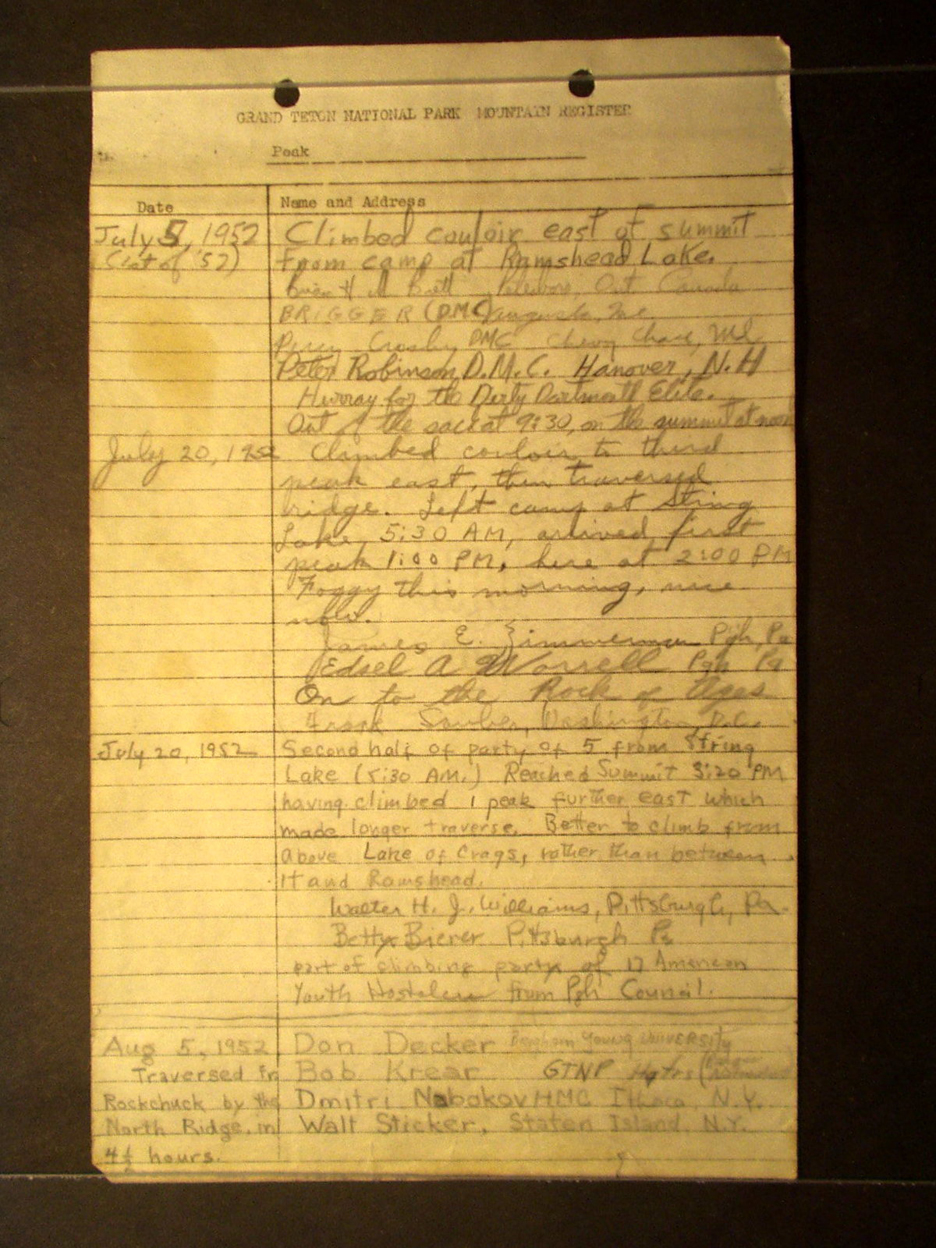 GRAND TETON NATIONAL PARK MOUNTAIN REGISTER
Peak
Date Name and Address
July 5, 1952 Climbed couloir east of summit
(1st of '52) from camp at Ramshead Lake.
Brian H Brett Ont. Canada
BRIGGER (DMC) Augusta, Me.
Percy Crosby DMC Chevy Chase, Md.
Peter Robinson, D.M.C. Hanover, N.H
Hurray for the Dirty Dartmouth Elite.
Out of the sac at 9:30, on the summit at noon
July 20, 1952 Climbed couloir to third
peak east, then traversed
ridge. Left camp at String
Lake 5:30 AM, arrived first
peak 1:00 PM, here at 2:00 PM
Foggy this morning, nice
now.
James E. Zimmerman Pgh, Pa
Edsel A Worrell Pgh Pa
On to the Rock of Ages
Frank Sauber, Washington, D.C.
July 20, 1952 Second half of party of 5 from String
Lake (5:30 AM.) Reached Summit 3:20 PM
having climbed 1 peak further east which
made longer traverse. Better to climb from
above Lake of Crags, rather than between
it and Ramshead.
Walter H. J. Williams, Pittsburgh, Pa.
Betty Bierer Pittsburgh Pa
part of climbing party of 17 American
Youth Hostelers from Pgh Council.
Aug 5, 1952 Don Decker Brigham Young University
Traversed fr Bob Krear GTNP Hqtrs
Rockchuck by the Dmitri Nabokov HMC Ithaca, N.Y.
North Ridge in Walt Sticker, Staten Island, N.Y.
4½ hours.